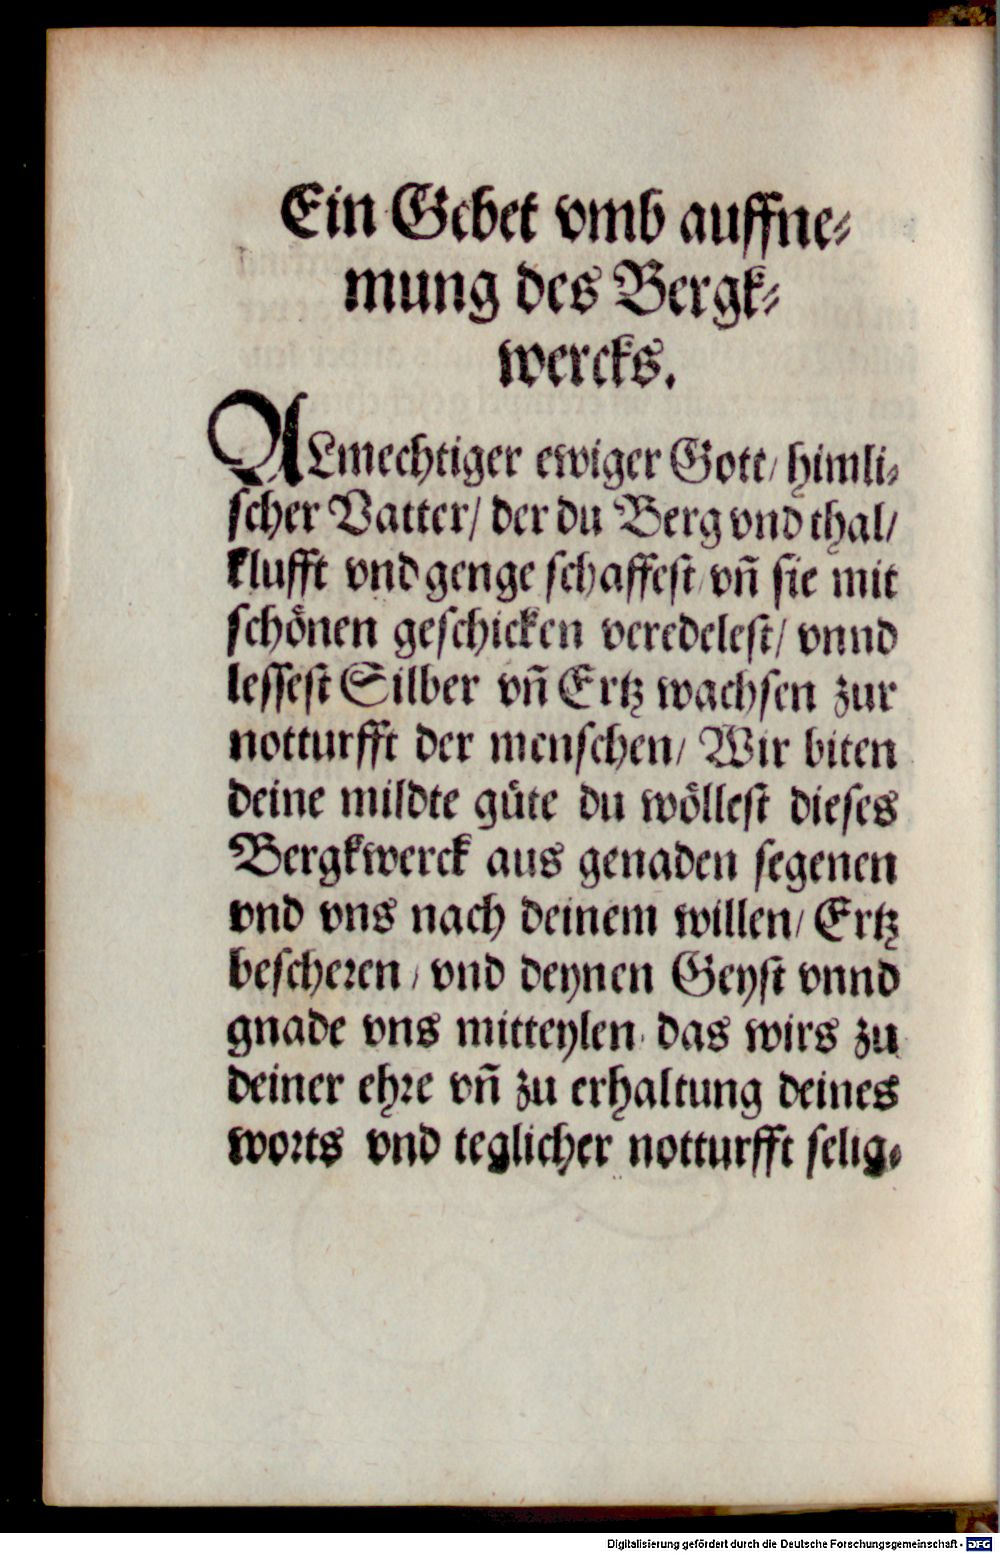 Ein Gebet vmb auffne⸗
mung des Bergk⸗
wercks.
ALmechtiger ewiger Gott/ himli⸗
scher Vatter/ der du Berg vnd thal/
klufft vnd genge schaffest/ vñ sie mit
schönen geschicken veredelest/ vnnd
lessest Silber vñ Ertz wachsen zur
notturfft der menschen/ Wir biten
deine mildte güte du wöllest dieses
Bergkwerck aus genaden segenen
vnd vns nach deinem willen/ Ertz
bescheren/ vnd deynen Geyst vnnd
gnade vns mitteylen/ das wirs zu
deiner ehre vñ zu erhaltung deines
worts vnd teglicher notturfft selig⸗
Digitalisierung gefördert durch die Deutsche Forschungsgemeinschaft - DFG